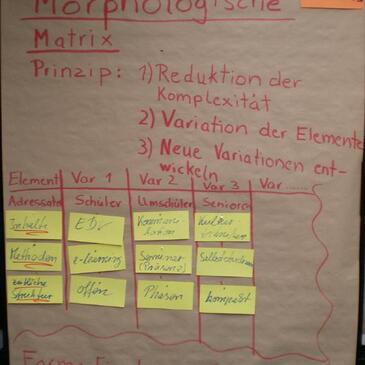 Morphologische
Matrix
Prinzip: 1) Reduktion der
Komplexität
2) Variation der Elemente
3) Neue Variationen ent-
wickeln
Element Var 1 Var 2 Var 3 Var......
Adressate Schüler Umschüler Senioren
Inhalte EDV
Methoden e-learning Seminar (Präsenz)
zeitliche Struktur offen Phasen kompakt